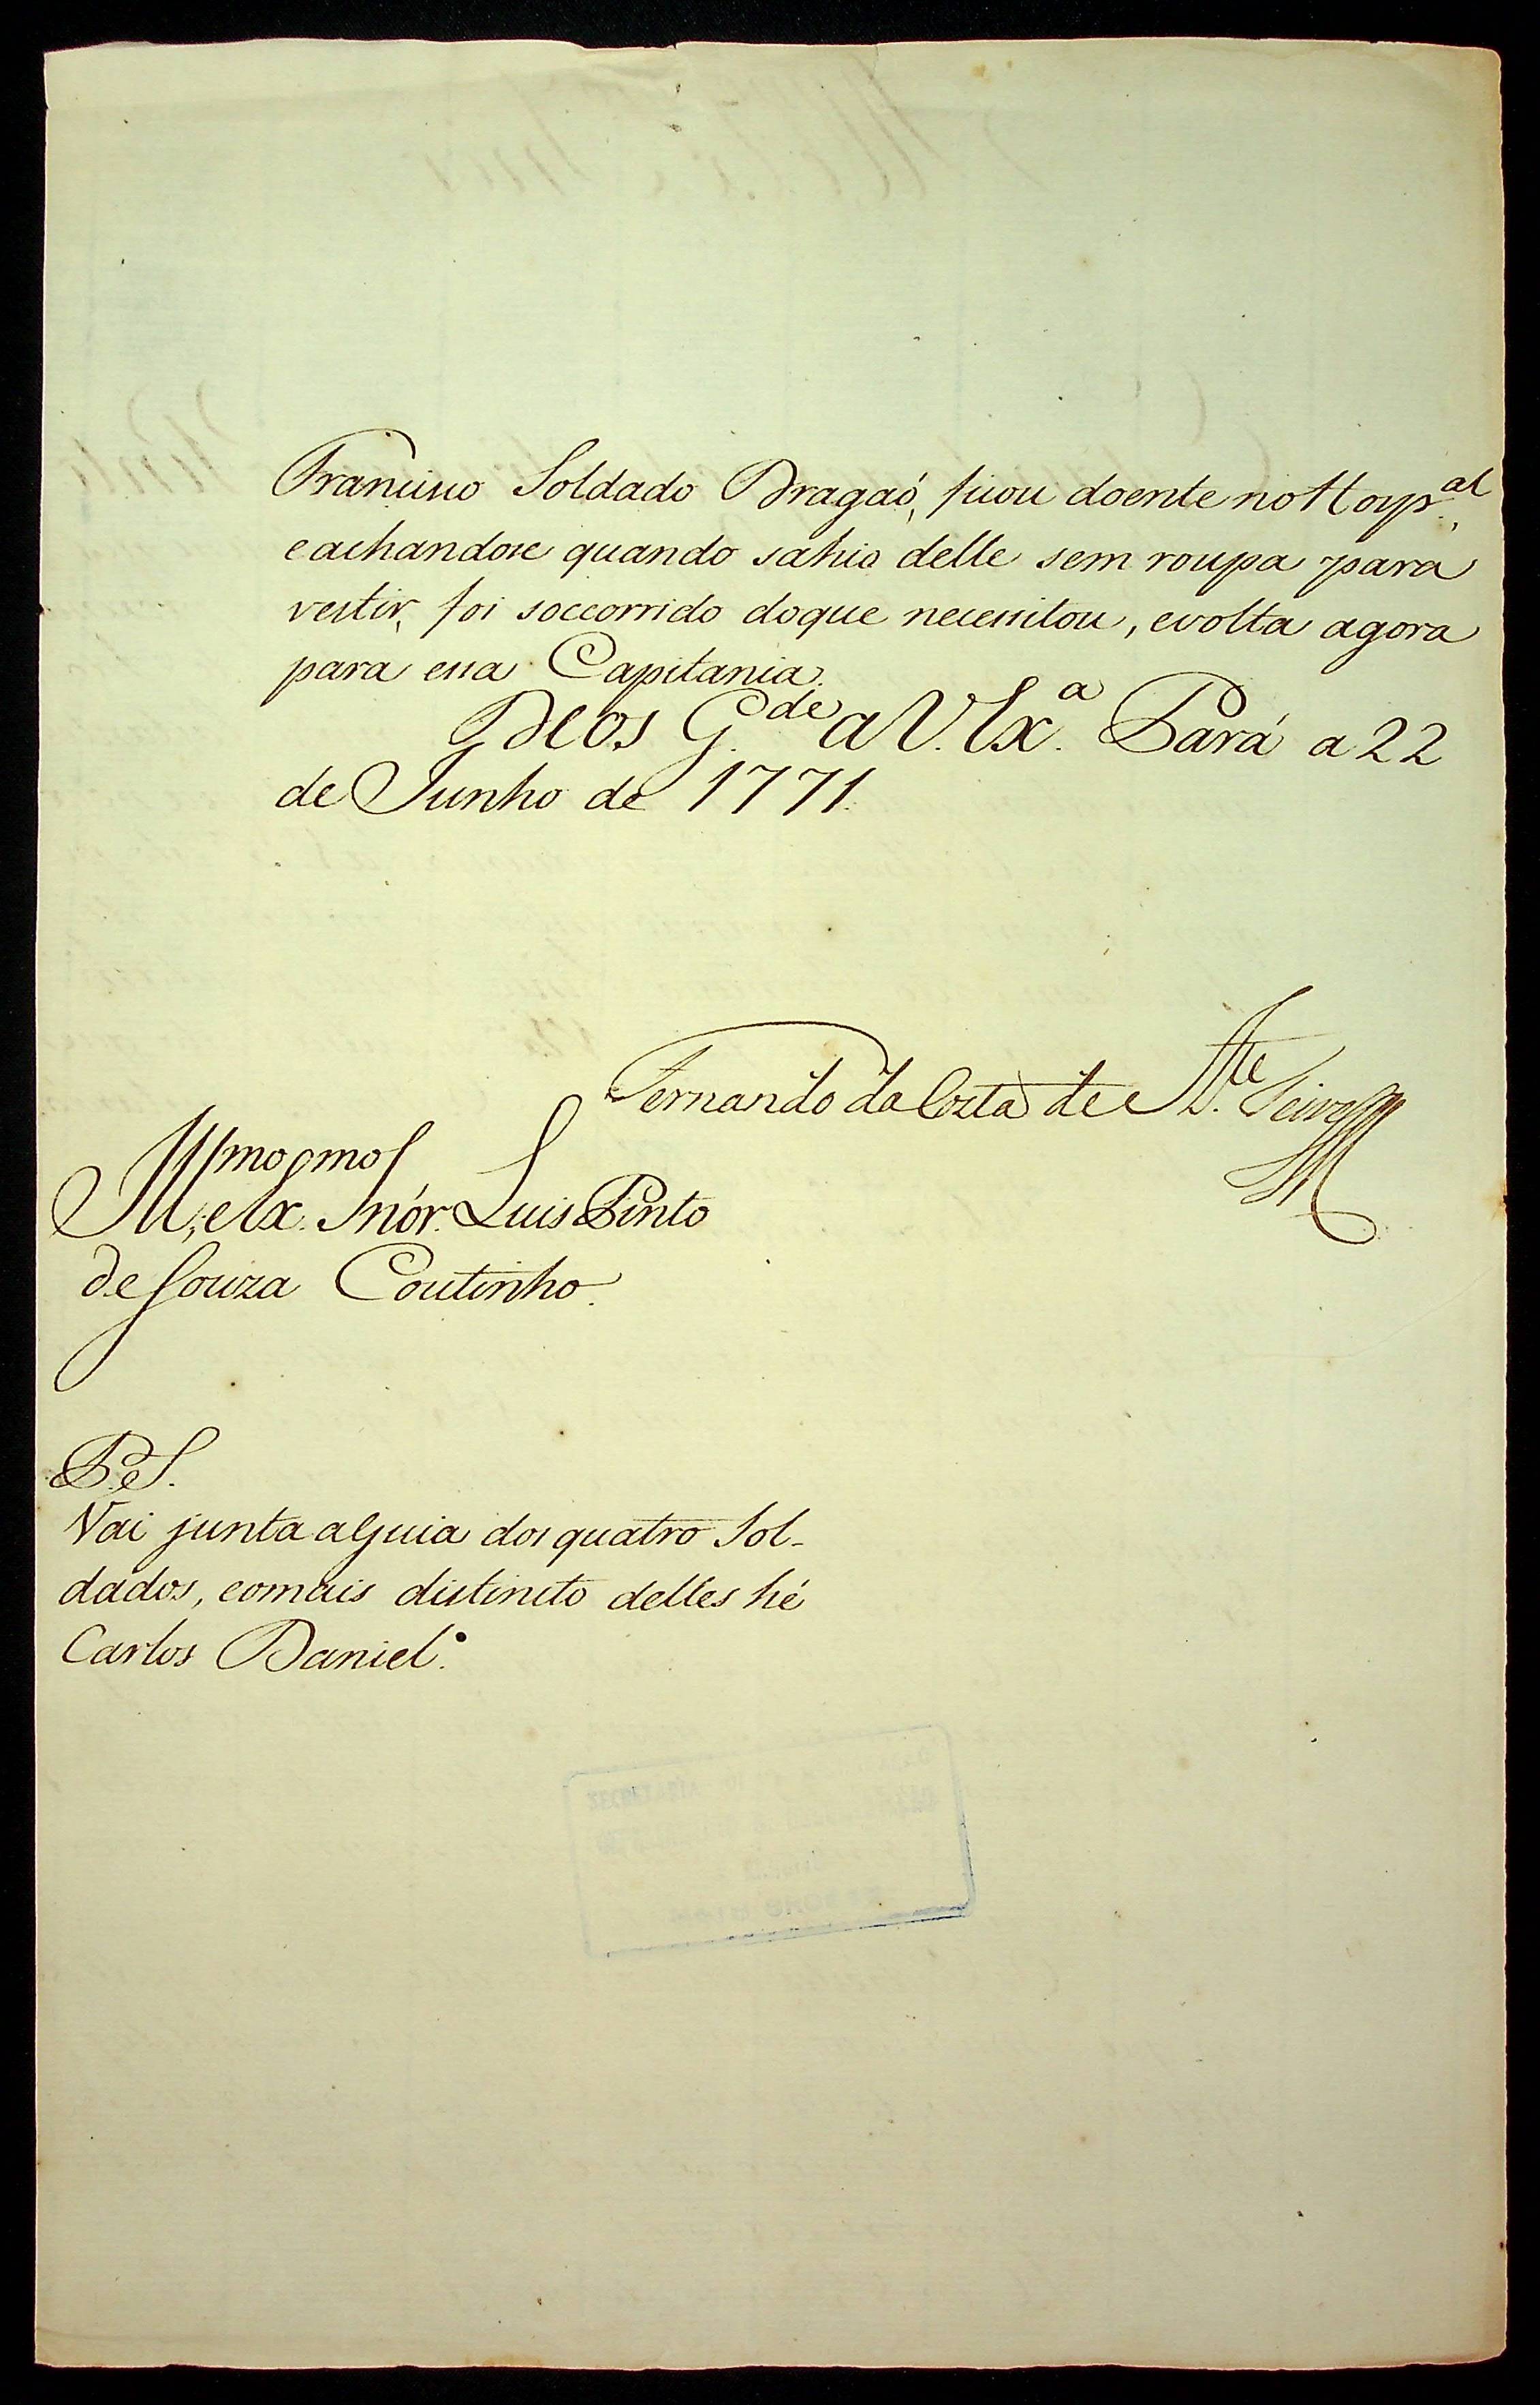 Francisco Soldado Dragaó, ficou doente no Hosp.al,
e achandose quando sahio delle sem roupa para
vestir, foi soccorrido doque necessitou, evolta agora
para essa Capitania.
Deos G.de a V. Ex.a Pará a 22
de Junho de 1771.
Fernando da Costa de Att.e Teive
Ill.mo, e Ex.mo Snór. Luis Pinto
de Souza Coutinho.
P. S.
Vai junta aGuia dos quatro Sol-
dados, eomais distincto delles hé
Carlos Daniel.
SECRETARIA